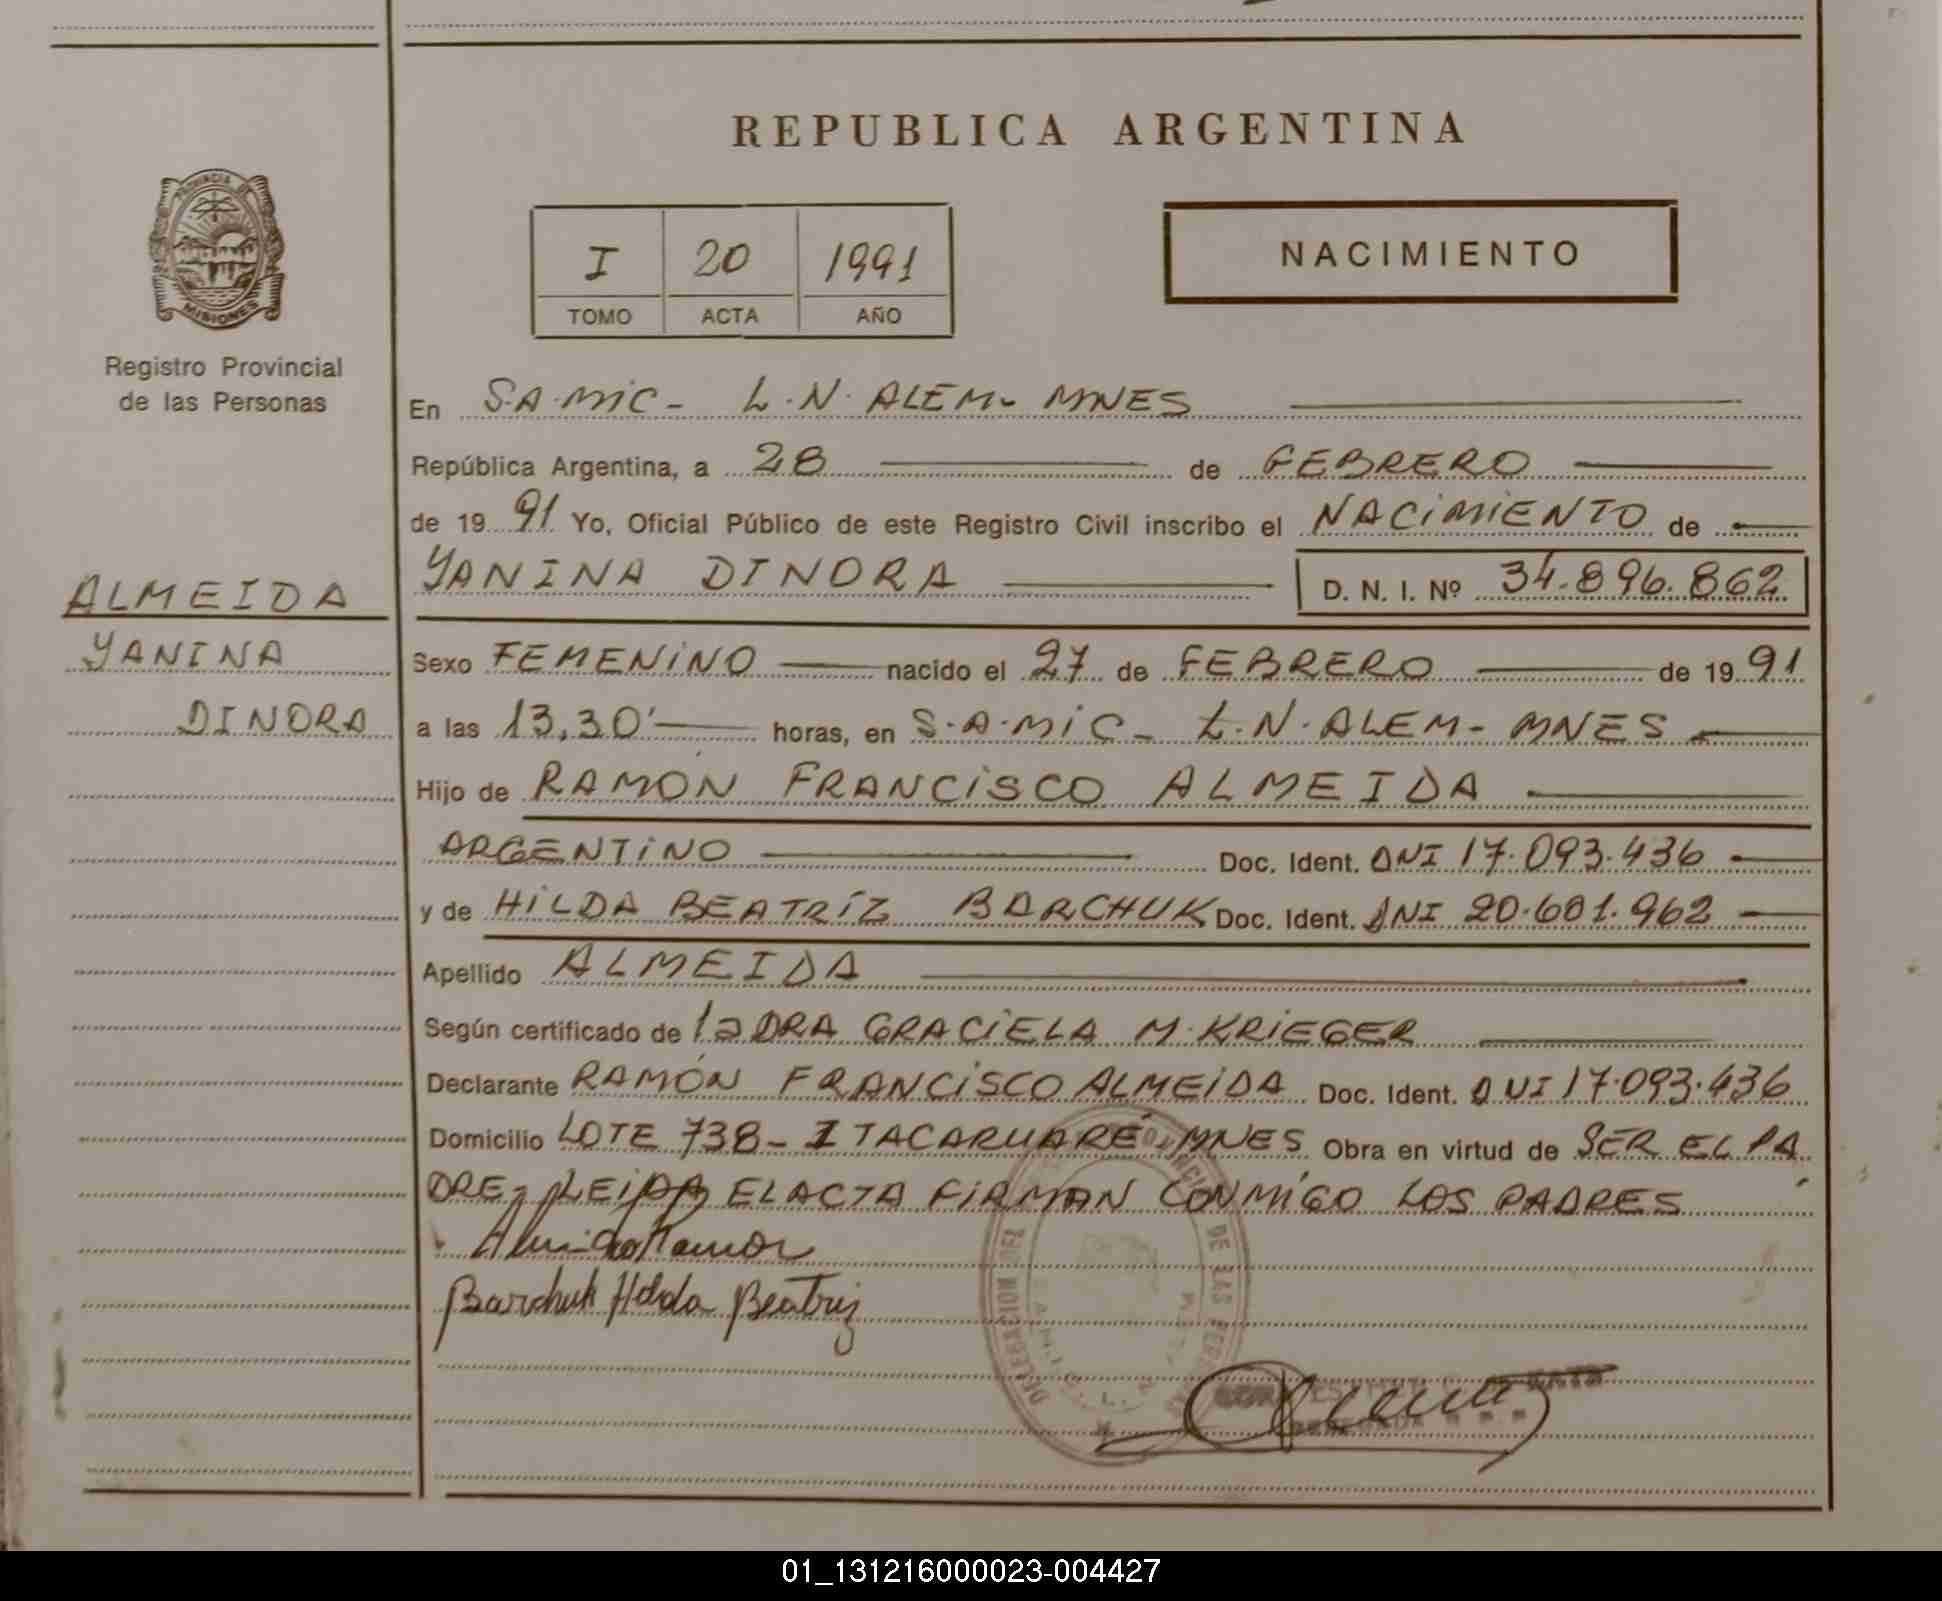 REPUBLICA ARGENTINA
PROVINCIA DE
MISIONES
Registro Provincial
de las Personas
I 20 1991
TOMO ACTA AÑO
NACIMIENTO
En S.A.MiC- L.N. ALEM- MNES
República Argentina, a 28 de FEBRERO
de 19 91 Yo, Oficial Público de este Registro Civil inscribo el NACiMiENTO de
YANINA DINORA D. N. I. Nº 34.896.862
ALMEIDA
YANINA
DINORA
Sexo FEMENiNO nacido el 27 de FEBRERO de 19 91
a las 13,30' horas, en S.A.MiC- L.N. ALEM- MNES
Hijo de RAMÓN FRANCiSCO ALMEIDA
ARGENTiNO Doc. Ident. DNI 17.093.436
y de HiLDA BEATRíZ BARCHUK Doc. Ident. DNI 20.601.962
Apellido ALMEIDA
Según certificado de la DRA GRACiELA M. KRiEGER
Declarante RAMÓN FRANCiSCO ALMEiDA Doc. Ident. DNI 17.093.436
Domicilio LOTE 738- ITACARUARÉ MNES Obra en virtud de SER EL PA
DRE- LEiDA EL ACTA FiRMAN CONMiGO LOS PADRES
Ramon
Barchuk Hilda Beatriz
DELEGACION DEL
DE LAS
01_131216000023-004427